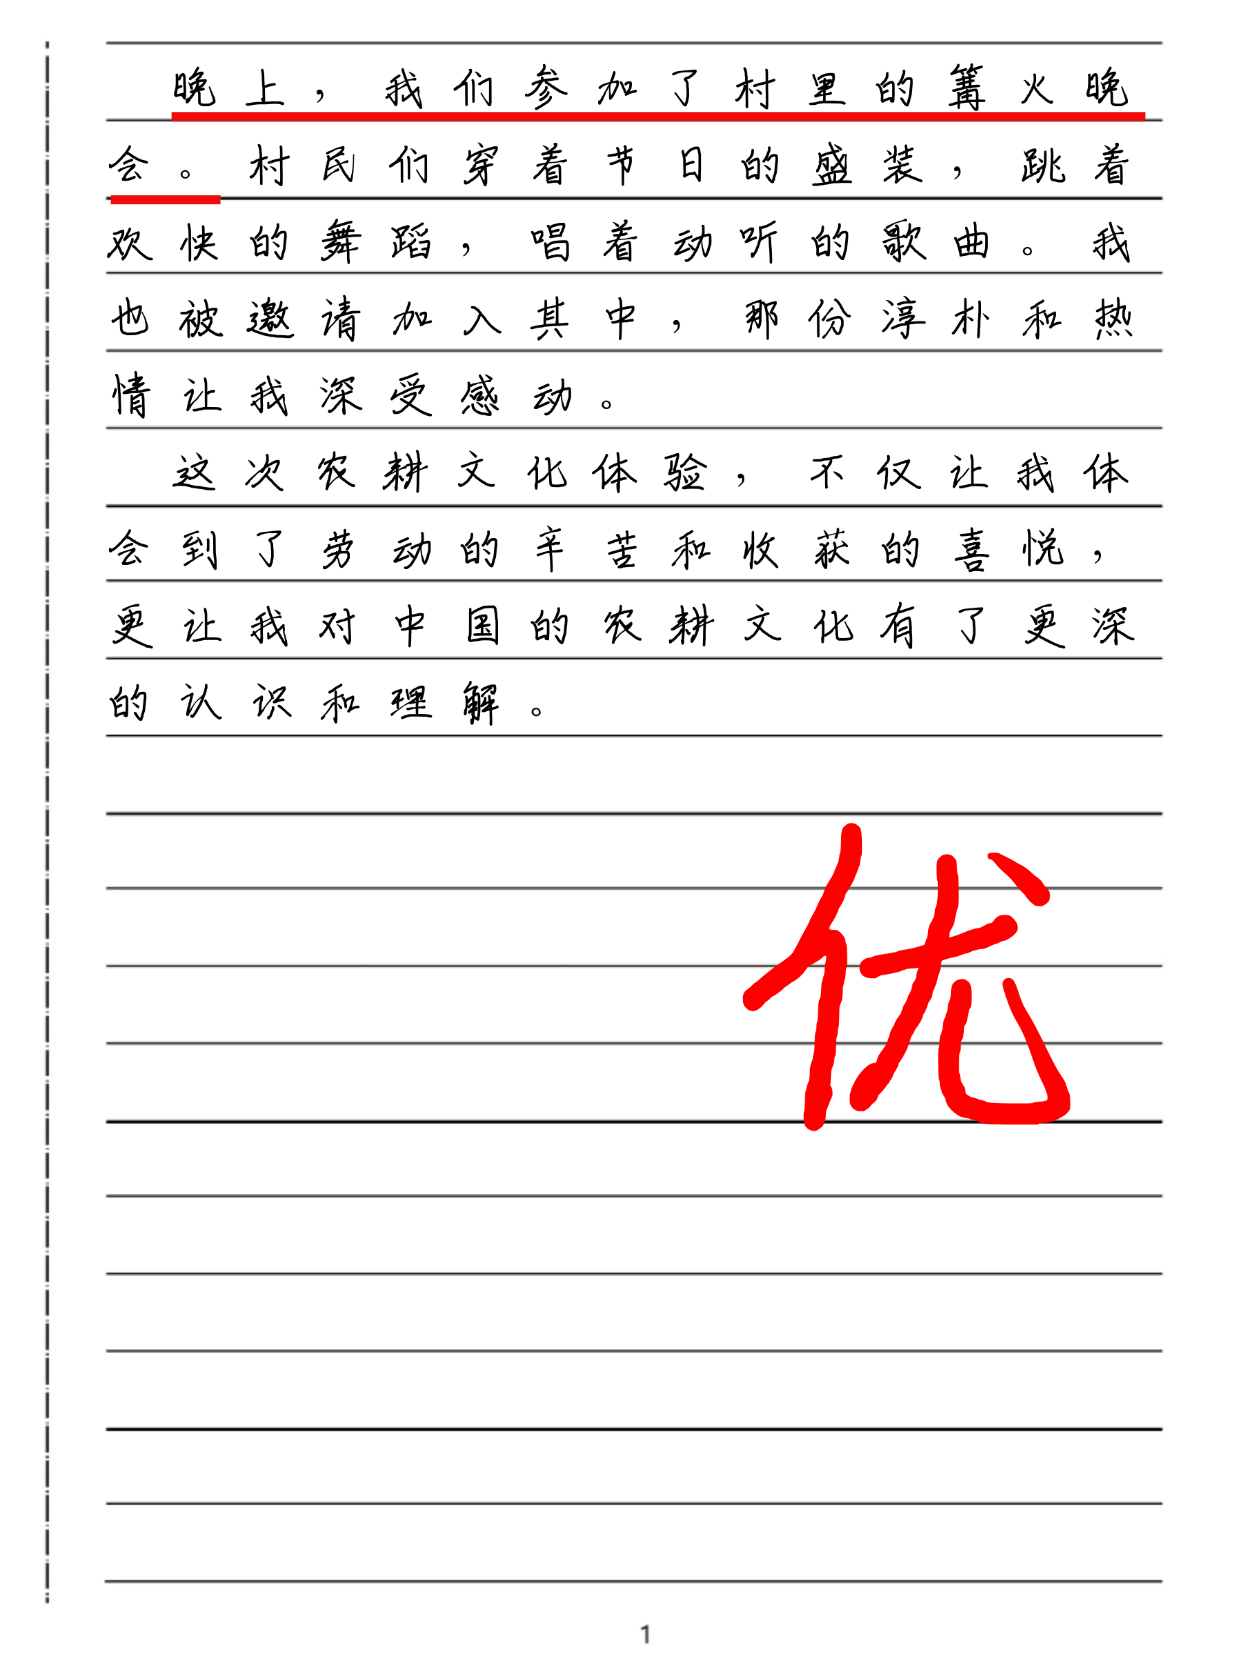 晚上，我们参加了村里的篝火晚
会。村民们穿着节日的盛装，跳着
欢快的舞蹈，唱着动听的歌曲。我
也被邀请加入其中，那份淳朴和热
情让我深受感动。
这次农耕文化体验，不仅让我体
会到了劳动的辛苦和收获的喜悦，
更让我对中国的农耕文化有了更深
的认识和理解。
优
1